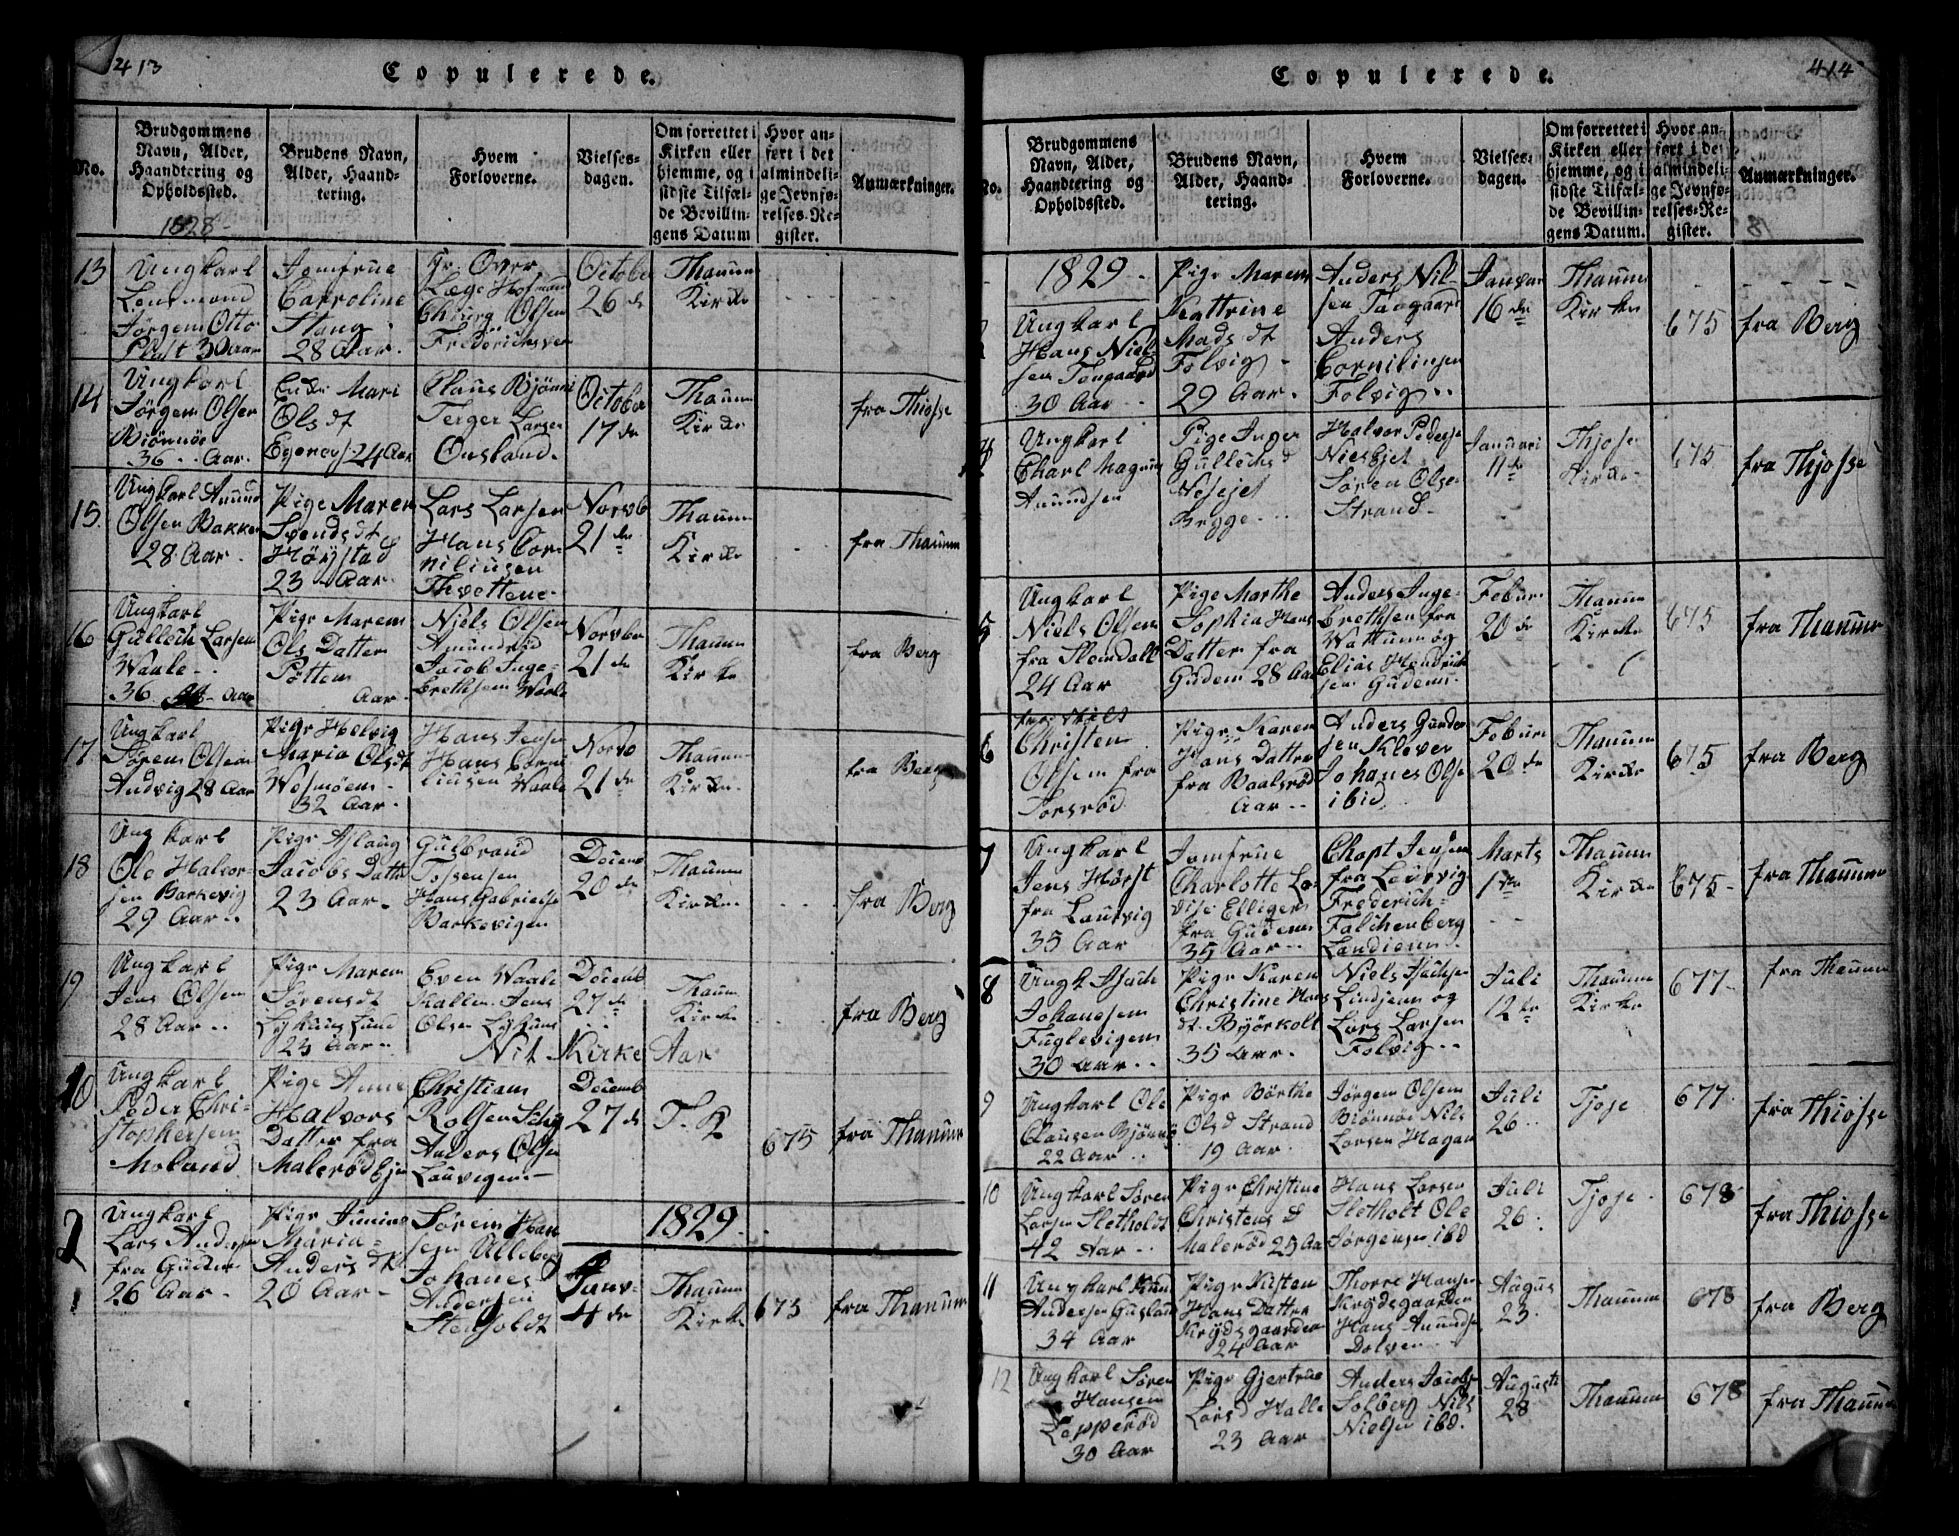 413
Copulerede.
No.
Brudgommens
Navn, Alder,
Haandtering og
Opholdssted.
Brudens Navn,
Alder, Haand-
tering.
Hvem
Forloverne.
Vielses-
dagen.
Om forrettet i
Kirken eller
hjemme, og i
sidste Tilfæl-
de Bevillin-
gens Datum
Hvor an-
ført i det
almindeli-
ge Jevnfø-
relses-Re-
gister.
Anmærkninger.
1828-
13
Ungkarl
Jørgen Otto
30 Aar
Jomfrue
Carroline
Stang
28 Aar.
Hr. Over
Læge Hofmand
Olsen
Frederichsvern
October
26 de
Thaunm
Kirke
14
Ungkarl
Jørgen Olsen
Bjønnøe
36 - Aar.
Enke Mari
Ols dt
24 Aar
Claus Bjønnø
Terger Larsen
Ousland.
October
17 de
Thaunm
Kirke
fra Thiosse
15.
Ungkarl Anund
Olsen Bakken
28 Aar.
Pige Maren
Svends dt
Hørystad
23 - Aar.
Lars Larsen
Hans Cor-
niliusen
Thvettene.
Norvb
21 de
Thaunm
Kirke
fra Thaunm
16
Ungkarl
Gullech Larsen
Waale -
36 - Aar
Pige Maren
Ols Datter
Pøtten
Aar.
Niels Olsen
Amundrød
Jacob Inge-
brethsen Waale
Norvber
21 de
Thaunm
Kirke
fra Berg
17
Ungkarl
Sørem Olsen
Andvig 28 Aar
Pige Helvig
Maria Olsdt
Wosmøen
32 Aar.
Hans Jensen
Hans Corni
liusen Waale
Norvb
21 de
Thaunm
Kirke.
fra Berg
18
Ung karl
Ole Halvor-
sen Barkevig
29 Aar.
Pige Aslaug
Jacobs Datter
23 Aar.
Gulbrand
Tossensen
Hans Gabrielse
Barkevigen
Decemb
20 de
Thaunm
Kirke.
fra Berg
19
Ungkarl
Jens Olsen
28 Aar -
Pige Maren
Sørensdt
Lykung Lund
23 Aar.
Even Waale
Kallen Jens
Olsen Lykung
Decemb
27 de
Thaunm
Kirke
fra Berg
Nit Kirke Aar
Ungkarl
Peder Chri-
stophersen
Moland
Pige Anne
Halvors
Datter fra
Malerød Ejer
Christian
Rolfsen Schi
Anders Olsen
Lauvigen.
Decemb
27 de
T. K
675
fra Thaunm
1829.
1
Ungkarl
Lars Andersen
fra Guden
26 Aar.
Pige
Maria
Anders dt
20 Aar.
Sørem Han
sen Ulleberg
Johanes
Andersen
Stenholdt
Janv.
4 de
Thaunm
Kirke
675
fra Thaunm
414
Copulerede.
No.
Brudgommens
Navn, Alder,
Haandtering og
Opholdssted.
Brudens Navn,
Alder, Haand-
tering.
Hvem
Forloverne.
Vielses-
dagen.
Om forrettet i
Kirken eller
hjemme, og i
sidste Tilfæl-
de Bevillin-
gens Datum.
Hvor an-
ført i de
almindeli-
ge Jevnfø-
relses-Re-
gister.
Anmærkninger.
1829 -
Ungkarl
Hans Niel-
sen Taagaard
30 Aar
Pige Maren
Kattrine
Mads dt
Folvig
29 Aar.
Anders Nil-
sen Taagaard
Anders
Cornilinsen
Folvig.
Januar
16 de
Thaunm
Kirke
675
fra Berg
4
Ungkarl
Charl Magnus
Anundsen
Pige Inger
Gullechs d
Nesejet
Brygge.
Halvor Pederse
Niesejet
Søren Olse
Strand.
Januari
11 te
Thjose
Kirke
675
fra Thjosse
5
Ungkarl
Niels Olsen
fra Slemdall
24 Aar
Pige Marthe
Sophia Hans
Datter fra
Guden 28 Aar
Anders Inge-
brethsen fra
Wattunn og
Elias Hendrich
sen Gudens.
Febur
20 de
Thaunm
Kirke
675
fra Thaunm
6
Christen
Olsen fra
Torsrød
Pige Karen
Hans Datter
fra Baalsrød
Aar.
Anders Gunder
sen Klever
Johanes Olse
ibid
Febur
20 de
Thaunm
Kirke
675
fra Berg
7
Ungkarl
Jens Hørst
fra Laurvig
35 Aar
Jomfrue
Charlotte Lo-
vise Elligers
fra Gudem
35 Aar.
Chapt Jensen
fra Leirvig
Frederich
Falchenberg
Marts
1 ste
Thaunm
Kirke
675
fra Thaunm
8
Ungk Isach
Johanesen
Fuglevigen
30 Aar.
Pige Karen
Christine Hans
dt. Byørkolt
35 Aar.
Niels Isachsen
Lindjenn og
Lars Larsen
Folvig.
Juli
12 te
Thaunm
Kirke
677
fra Thaunm
9
Ungkarl Ole
Clausen Bjønnø
22 Aar
Pige Børthe
Ols d Strand
19 Aar.
Jørgen Olsen
Biønnøe Nils
Larsen Hagan
Juli
26.
Tjose
677
fra Thiosse
10
Ung karl Søren
Larsen Sletholdt
42 Aar.
Pige Christine
Christens d
Malerød 25 Aa
Hans Larsen
Sletholt Ole
Jørgensen ibd
Juli
26.
Tjose
678
fra Thiosse
11
Ungkarl Knud
Andersen Gusland
34 Aar
Pige Kisten
Hans Datter
Krydsgaarden
24 Aar
Thorre Hansen
Krydsgaarden
Hans Anundse
Dolven
Augus
23.
Thaunm
678
fra Berg
12
Ungkarl Søren
Hansen
Lopperød
30 Aar
Pige Gjertrue
Lars d Halle
23 Aar
Anders Jacobse
Solberg Nils
Nielsen ibd.
Augusti
28
Thaunm
678
fra Thaunm